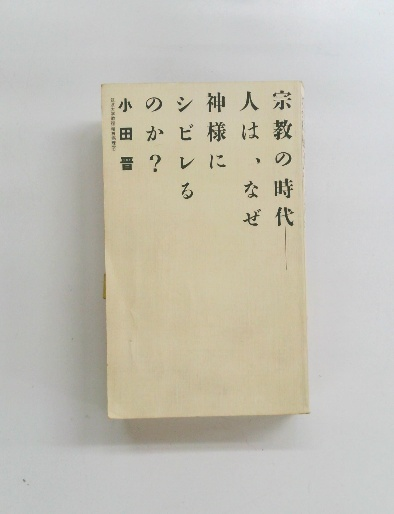 宗教の時代――
人は、なぜ
神様に
シビレる
のか？
小田晋